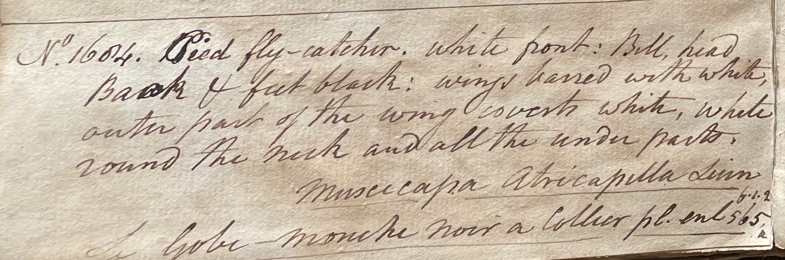 No. 1684. Pied fly-catcher. white front: Bill, head
Back & feet black: wings barred with white,
outer part of the wing coverts white, white
round the neck and all the under parts.
Muscicapa Atricapilla Linn
Le Gobe-mouche noir a Collier pl. enl 565,